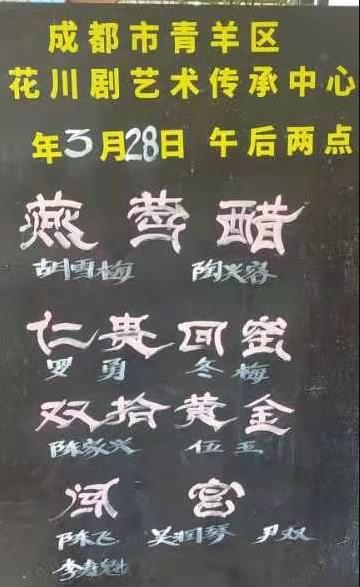 成都市青羊区
花川剧艺术传承中心
年3月28日 午后两点
燕莺醋
胡雪梅 陶兴容
仁贵回窑
罗勇 冬梅
双拾黄金
陈家兴 伍王
闯宫
陈飞 吴润琴 尹双